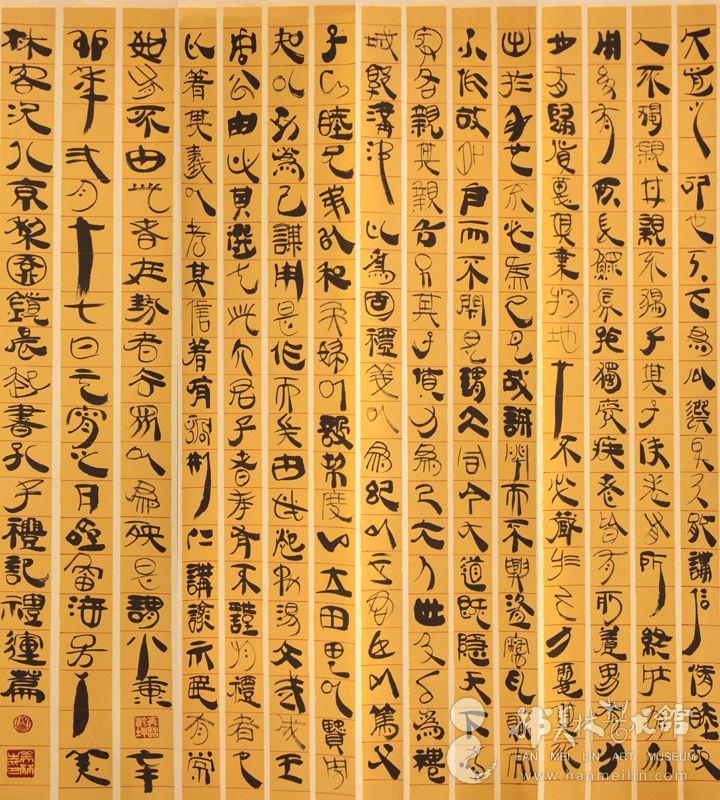 大道之行也天下為公選賢與能講信脩睦故
人不獨親其親不獨子其子使老有所終壯有所
用幼有所長鰥寡孤獨廢疾者皆有所養男有分
女有歸貨惡其棄於地也不必藏於己力惡其不
出於身也不必為己是故謀閉而不興盜竊亂賊而
不作故外戶而不閉是謂大同今大道既隱天下為
家各親其親各子其子貨力為己大人世及以為禮
城郭溝池以為固禮義以為紀以正君臣以篤父
子以睦兄弟以和夫婦以設制度以立田里以賢勇
知以功為己謀用是作而兵由此起禹湯文武成王
周公由此其選也此六君子者未有不謹於禮者也
以著其義以考其信著有過刑仁講讓示民有常
如有不由此者在勢者去眾以為殃是謂小康辛
卯年弍月十七日之月海右美
林客京鎮晨起書孔子禮記禮運篇
韩美林艺术館
HAN MEI LIN ART MUSEUM
www.hanmeilin.com